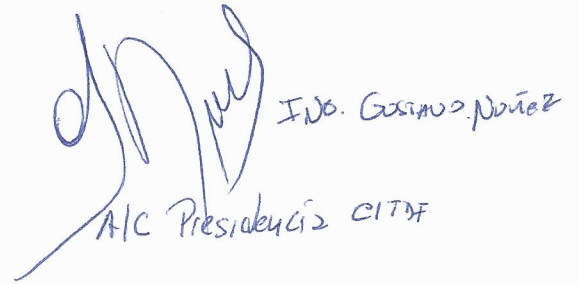 ING. GUSTAVO NUÑEZ
A/C Presidencia CITDF